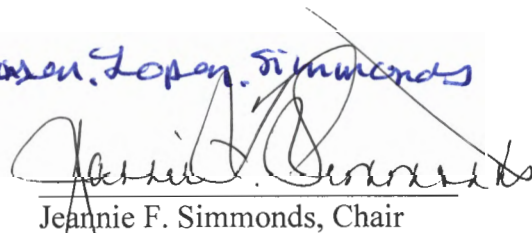 Lopez. Simmonds
Jeannie F. Simmonds
Jeannie F. Simmonds, Chair